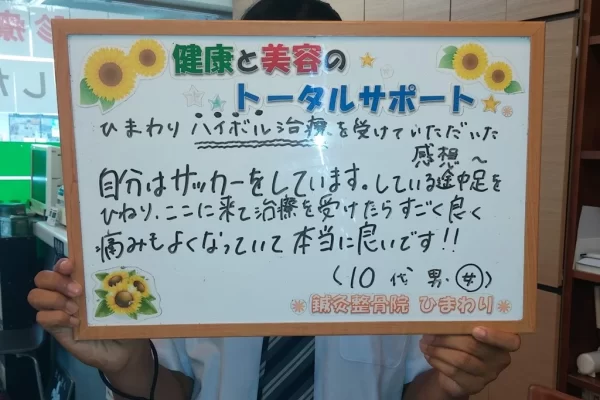 健康と美容の
トータルサポート
ひまわりハイボル治療を受けていただいた
感想～
自分はサッカーをしています。している途中足を
ひねり、ここに来て治療を受けたらすごく良く
痛みもよくなっていて本当に良いです!!
(10代 男・女)
鍼灸整骨院 ひまわり
診療
し